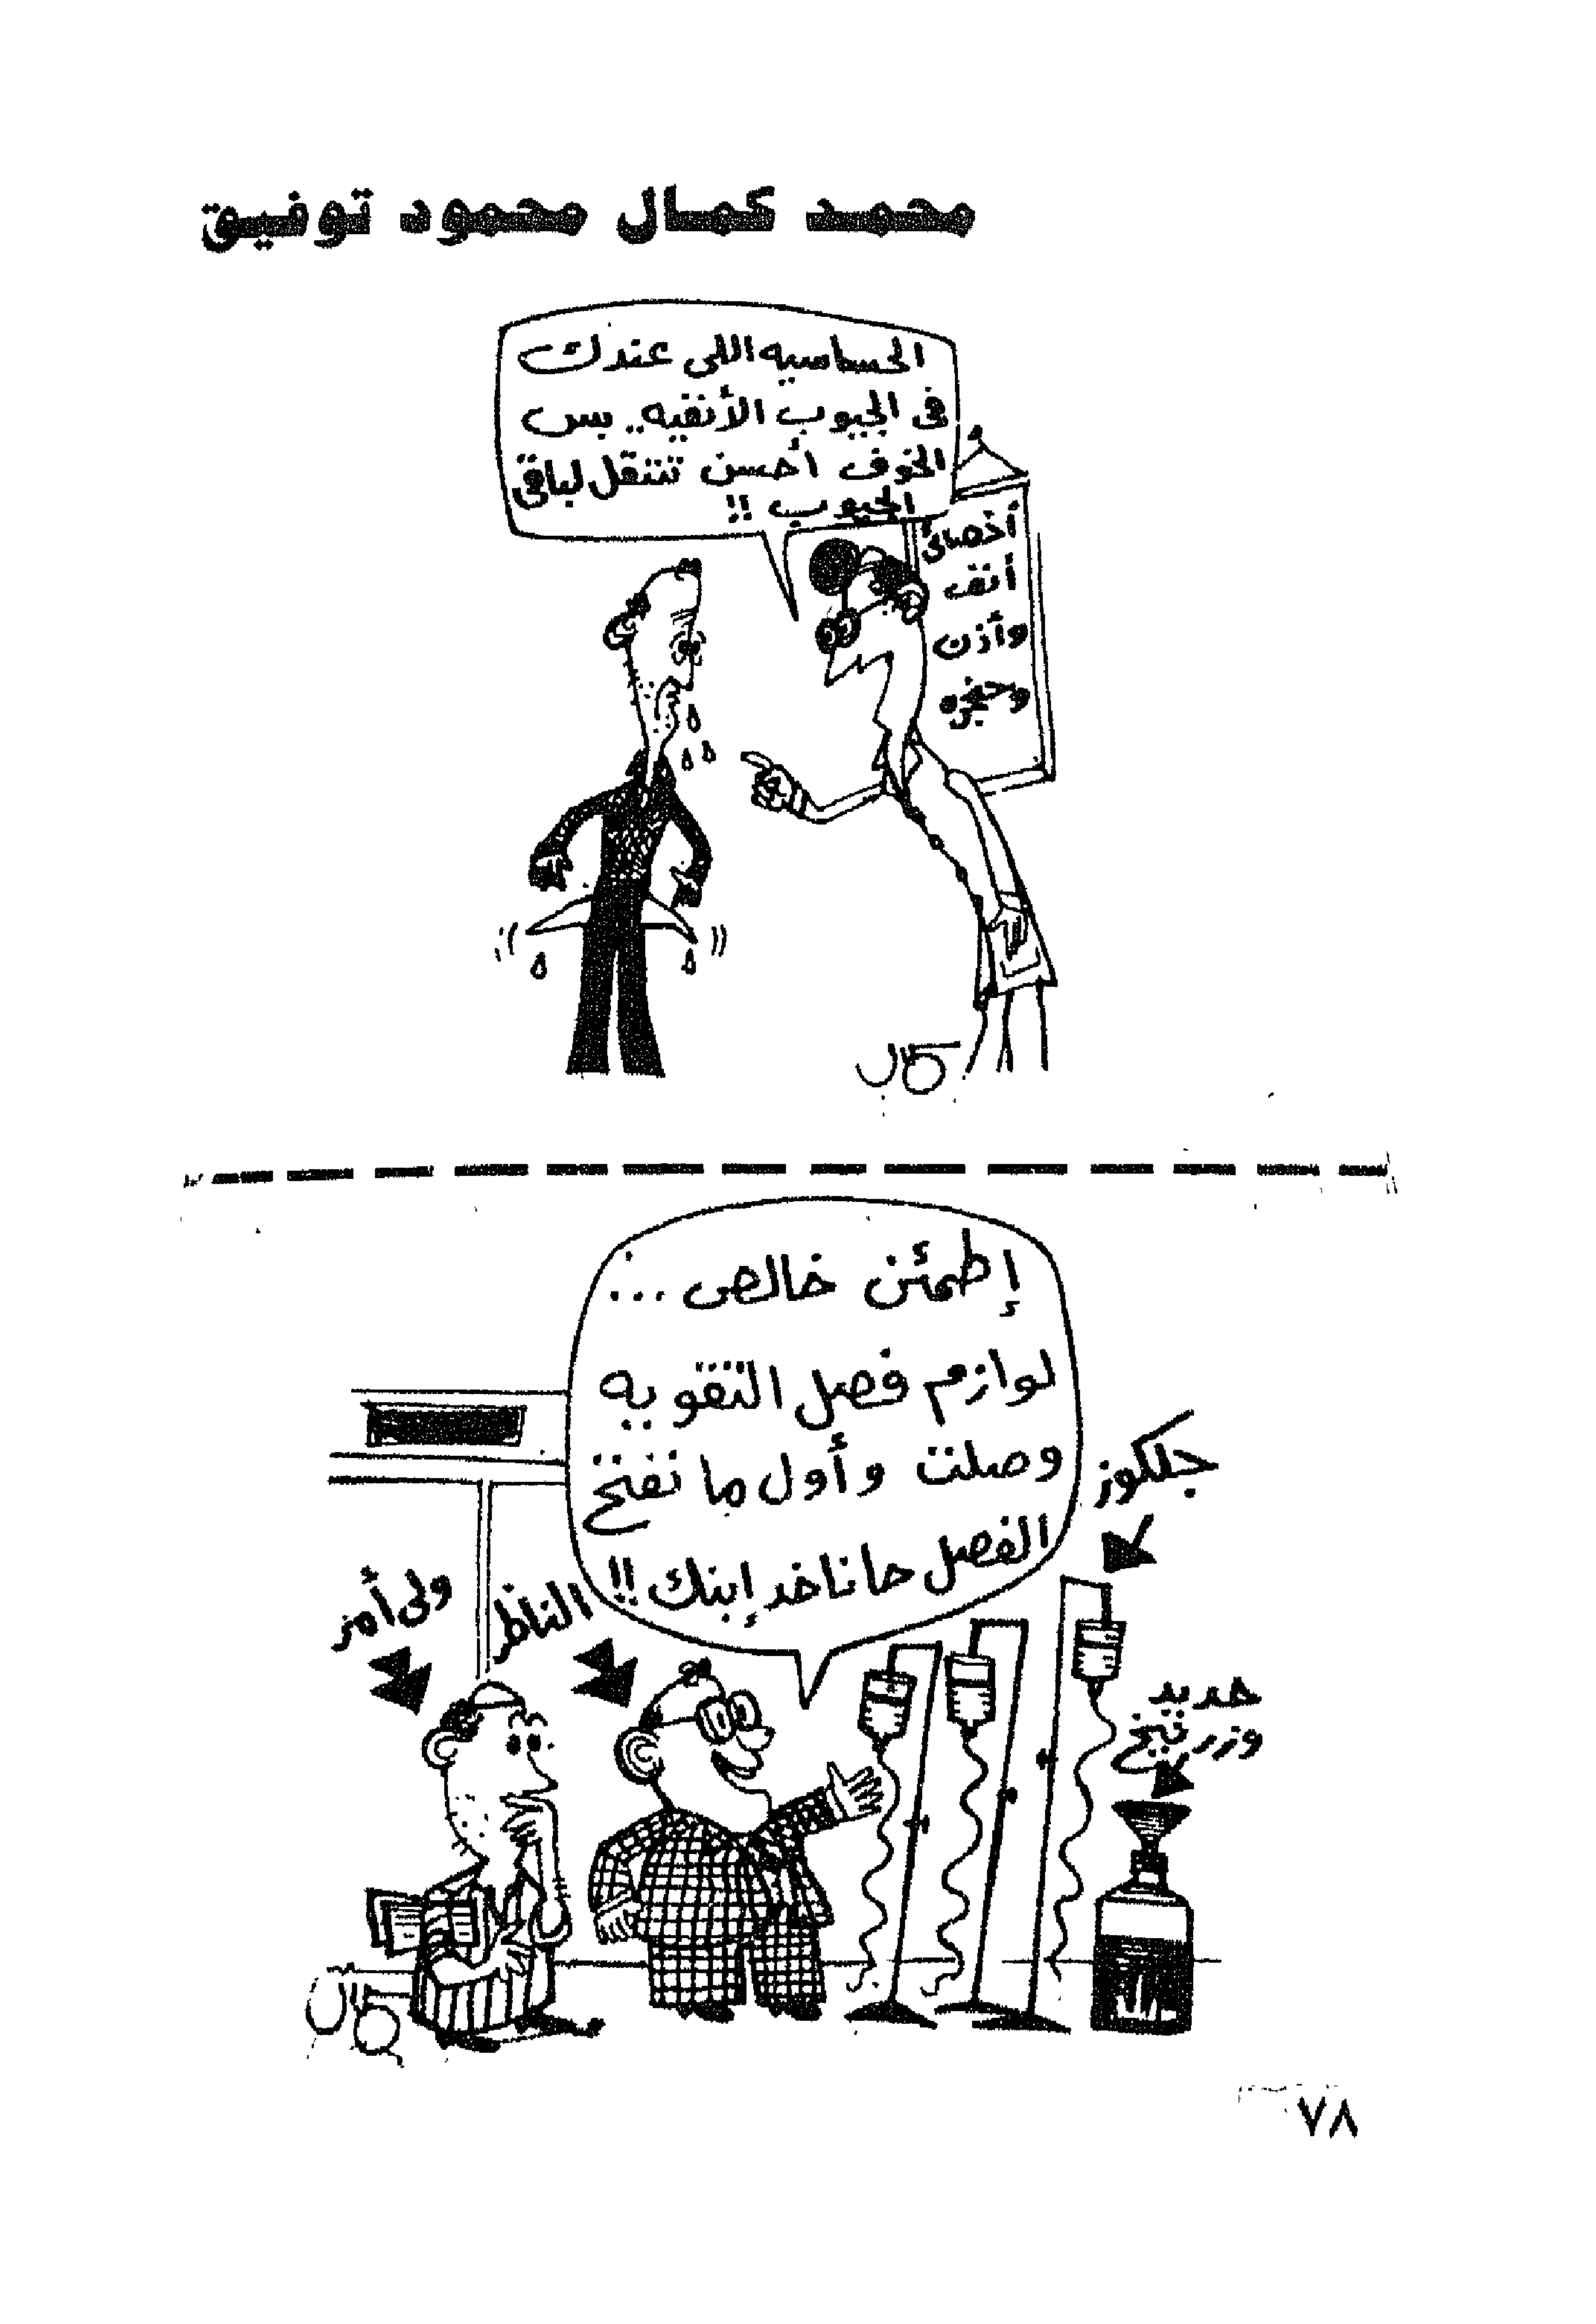 محمد كمال محمود توفيق
الحساسيه اللى عندك
فى الجيوب الأنفيه.. بس
الخوف أحسن تتنقل لباقى
الجيوب !!
أخصائى
أنف
وأذن
وحنجره
كمال
إطمئن خالص ...
لوازم فصل التقويه
وصلت وأول ما نفتح
الفصل حاناخد إبنك !!
جلكوز
ولى أمر
الناظر
حديد
وزرنيخ
كمال
٧٨